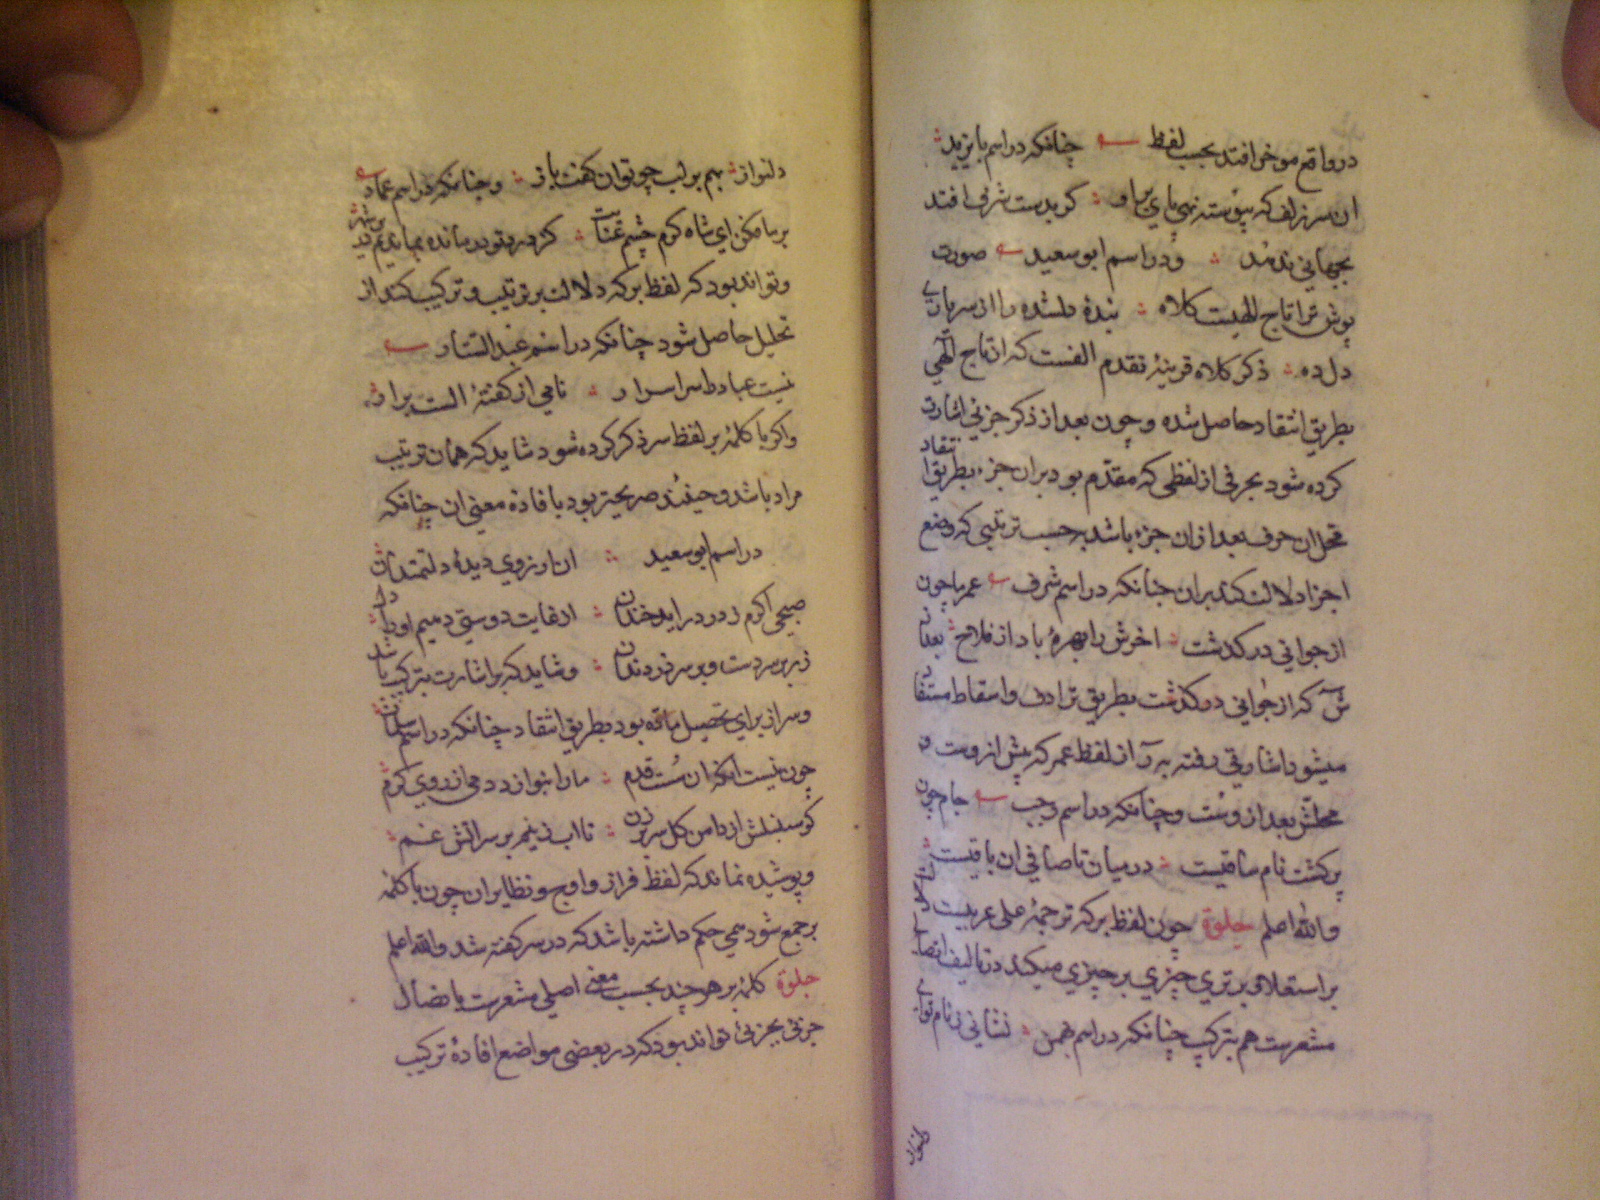 در واقع موخر افتد بحسب لفظ چنانکه در اسم بایزید
ان سر زلف که پیوسته نهی پای براو کر بدست شرف افتد
بجهانی ندهند ودر اسم ابو سعید صورت
پوش ترا تاج الهیست کلاه بندهٔ دلشده را از سر
دل ده ذکر کلاه قرینهٔ تقدم الفست که از تاج الهی
بطریق انتقاد حاصل شده وچون بعد از ذکر جزئی اشارت
کرده شود بحرفی از لفظی که مقدّم بود بران جزء بطریق انتقاد
محل ان حرف بعد از ان جزء باشد برحسب ترتیبی که وضع
اجزا دلالت کند بران چنانکه در اسم شرف عمر ما چون
از جوانی در کذشت اخرش را بهرهٔ باد از فلاح بعد از
ش که از جوانی در کذشت بطریق ترادف واسقاط مستفاد
میشود اشارتی رفته به ر از لفظ عمر که پیش از وست و
محلش بعد از وست وچنانکه در اسم رجب جام چون
پرکشت نام ما قیست درمیان تا صافی ان باقیست
والله اعلم جلوة چون لفظ بر که ترجمهٔ علی عربیست
بر استعلا وبرتری چیزی بر چیزی میکند در تالیف
مشعرست هم بترکیب چنانکه در اسم بهمن نشانی ز نام تو ای
دلنواز
دلنواز بهم بر لب چو توان کفت باز وچنانکه در اسم عماد
بر ما مکن ای شاه کرم چشم عنایت کز درد تو
وتواند بود که لفظ بر که دلالت بر ترتیب وترکیب کند از
تحلیل حاصل شود چنانکه در اسم عبد الستار
نیست عباد اسرار نامی از کفتهٔ الست برار
واکر با کلمهٔ بر لفظ سر ذکر کرده شود شاید که همان ترتیب
مراد باشد وحینئذ صریحتر بود بافادهٔ معنی ان چنانکه
در اسم ابو سعید ان ارزوی دیدهٔ دلتمندان
صبحی اکرم ز در دراید خندان از غایت دوستی دمیم او را
زر بر سر دست وبر سر زر دندان وشاید که بر اشارت بترکیب باشد
وسر از برای تحصیل ماده بود بطریق انتقاد چنانکه در اسم سلمان
چون نیست انکه ان سست قدم مارا بنوازد دمی از روی کرم
کو سنبلش از دامن کل سر بر زن تا اب زنیم بر سر اتش غم
وپوشیده نماند که لفظ فراز واوج ونظایر ان چون با کلمهٔ
بر جمع شود همی حکم داشته باشد که در سر کفته شد والله اعلم
جلوة کلمهٔ بر هر چند بحسب معنی اصلی مشعرست باتصال
جزئی بجزئی تواند بود که در بعضی مواضع افادهٔ ترکیب